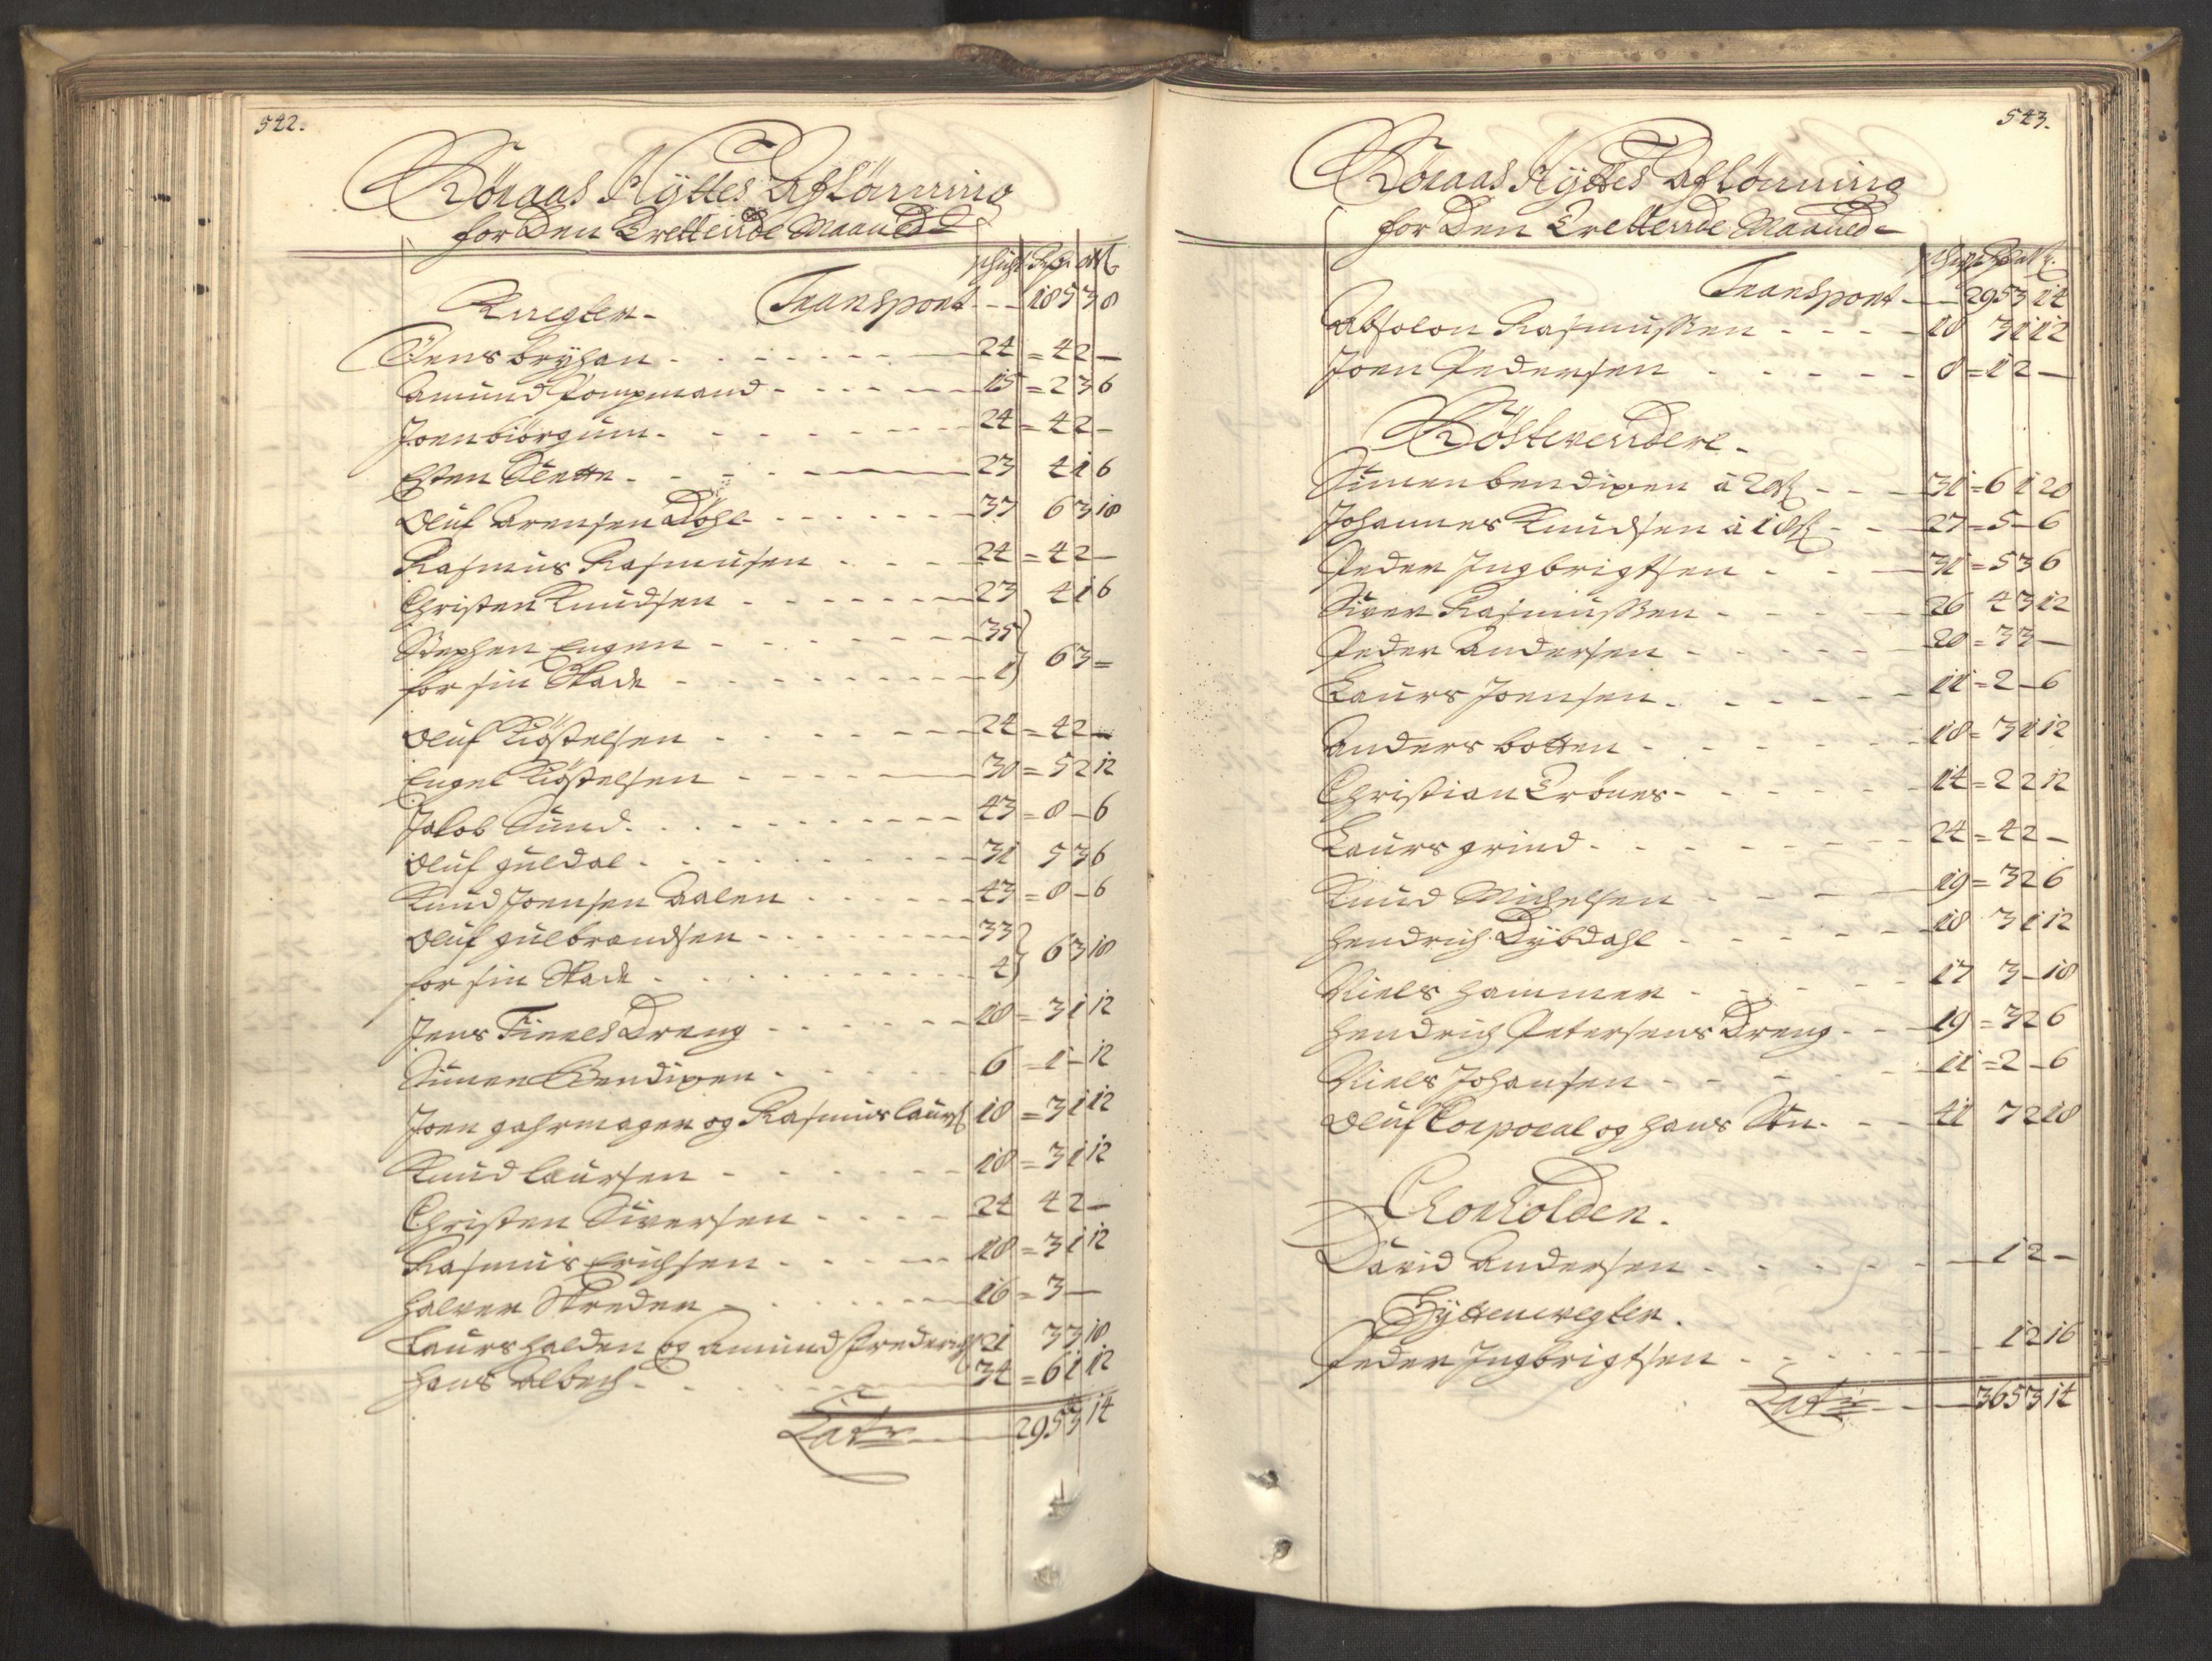 542.
Röraas Hyttes Aflönning
for Den Trettende Maaned
schicht Rdr. ort ß
Knegter. Transport - - 185 3 8
Jens bryhan - - - 24 = 4 2 —
Amund Pompmand - - - 15 = 2 3 6
Joen biörgum - - - 24 = 4 2 —
Esten Slette - - - 23 4 1 6
Oluf Arensen Döhl - - - 37 6 3 18
Rasmus Rasmusen - - - 24 = 4 2 —
Christen Knudsen - - - 23 4 1 6
Stephen Engen - - - 35
for sin Skade - - - 1 } 6 3 =
Oluf Kiöstelsen - - - 24 = 4 2 —
Engel Kiöstelsen - - - 30 = 5 2 12
Jakob Sund - - - 43 = 8 — 6
Oluf guldal - - - 31 5 3 6
Knud Joensen Aalen - - - 43 = 8 — 6
Oluf gulbrandsen - - - 33
for sin Skade - - - 4 } 6 3 18
Jens Finnes Dreng - - - 18 = 3 1 12
Simen Bendixen - - - 6 = 1 — 12
Joen gahrmager og Rasmus laurs 18 = 3 1 12
Knud laursen - - - 18 = 3 1 12
Christen Siversen - - - 24 4 2 —
Rasmus Erichsen - - - 18 = 3 1 12
Halver Skreder - - - 16 = 3 —
Laurs halden og Amund Frederichs 21 3 3 18
Hans Albech - - - 34 = 6 1 12
Latr - - 295 3 14
543.
Röraas Hyttes Aflönning
for Den Trettende Maaned
Transport - - 295 3 14
Absolon Rasmussen - - - 18 3 1 12
Joen Pedersen - - - 8 = 1 2 —
Röstevendere
Simen bendixen à 20ß - - 31 = 6 1 20
Johannes Knudsen à 18ß - - 27 = 5 — 6
Peder Ingbrigtsen - - - 31 = 5 3 6
Siver Rasmussen - - - 26 4 3 12
Peder Andersen - - - 20 = 3 3 —
Laurs Joensen - - - 11 = 2 — 6
Anders botten - - - 18 = 3 1 12
Christian Trönes - - - 14 = 2 2 12
Laurs grind - - - 24 = 4 2 —
Knud Michelsen - - - 19 = 3 2 6
Hendrich Dybdahl - - - 18 3 1 12
Niels hammer - - - 17 3 — 18
Hendrich Petersens Dreng - - 19 = 3 2 6
Niels Johansen - - - 11 = 2 — 6
Oluf Corporal og hans Sön - - 41 7 2 18
David Andersen - - - 1 2 —
Hyttevegter.
Peder Ingbrigtsen - - - 1 2 16
Latr - - 365 3 14